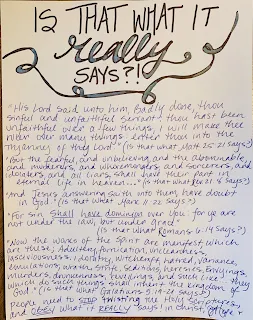 IS THAT WHAT IT
really
SAYS?!
"His Lord said unto him, Badly done, thou
sinful and unfaithful servant; thou hast been
unfaithful over a few things, I will make thee
ruler over many things. Enter thou into the
Tyranny of thy Lord" (Is that what Matt. 25:21 says?)
"But the fearful and unbelieving and the abominable,
and murderers, and whoremongers, and sorcerers, and
idolaters, and all liars, shall have their part in
eternal life in heaven..." (Is that what Rev 21:8 says?)
"And Jesus answering saith unto them, have doubt
in God" (Is that what Mark 11:22 says?)
"For sin shall have dominion over you for ye are
not under the law, but under Grace"
(Is that what Romans 6:14 says?)
"Now the works of the Spirit are manifest which
are these; Adultery, fornication, uncleanness,
lasciviousness, idolatry, witchcraft, hatred, variance,
emulations, wrath, strife, seditions, heresies, Envyings,
murders, drunkenness, revelings, and such like... they
which do such things shall inherit the kingdom of
God" (Is that what Galatians 5:19-21 says?)
People need to STOP twisting the Holy Scriptures
and OBEY what it REALLY says! In Christ,